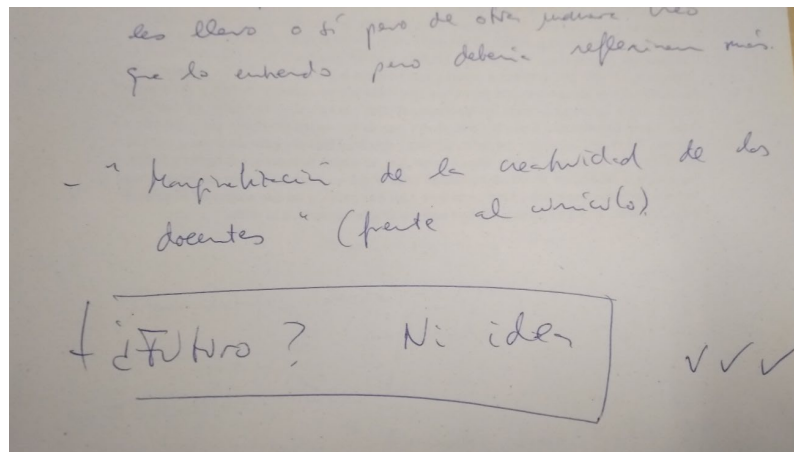 les llevo o sí pero de otra manera. Creo
que lo entiendo pero debería reflexionar más.
- "Marginalización de la creatividad de los
docentes" (frente al currículo).
+ ¿Futuro? Ni idea ✓✓✓